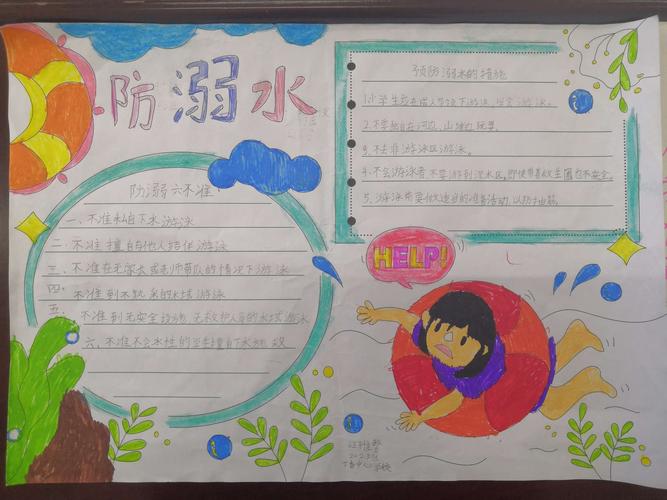 防溺水
防溺六不准
一、不准私自下水游泳
二.不准擅自与他人结伴游泳
三.不准在无家长或老师带队的情况下游泳
四.不准到不熟悉的水域游泳
五.不准到无安全设施无救护人员的水域游泳
六.不准不会水性的学生擅自下水施救
预防溺水的措施
1.小学生应在成人带领下游泳、学会游泳。
2.不要独自在河边、山塘边玩耍。
3.不去非游泳区游泳。
4.不会游泳者不要游到深水区,即使带着救生圈也不安全。
5.游泳前要做适当的准备活动,以防抽筋。
HELP!